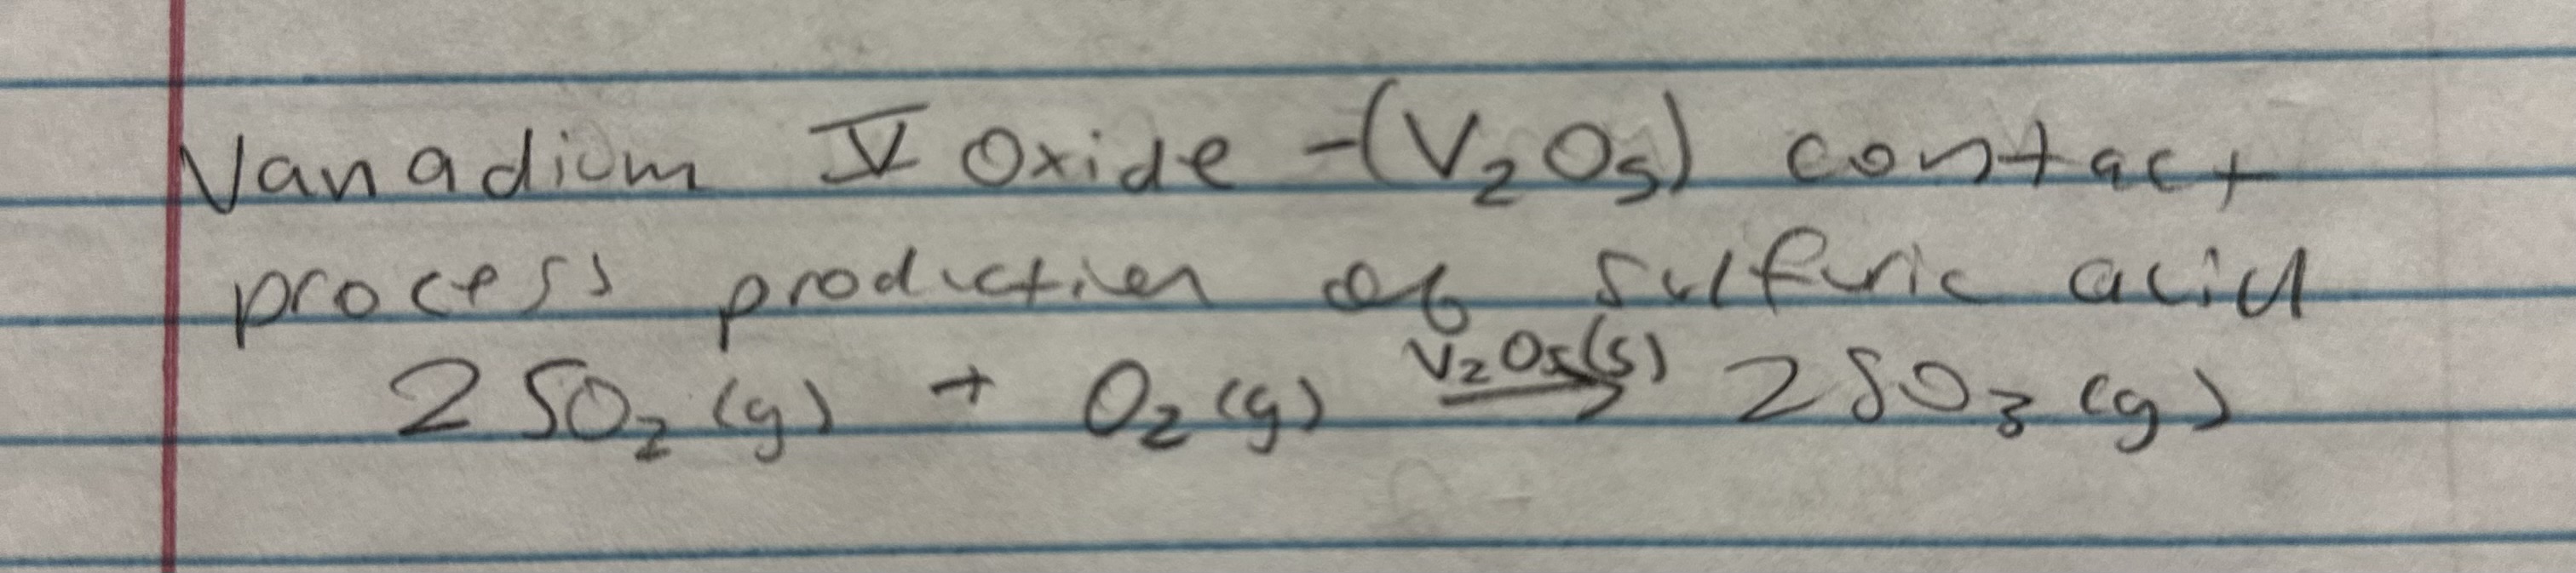 Vanadium V Oxide -(V₂O₅) contact
process production of sulfuric acid
2SO₂(g) + O₂(g) V₂O₅(s)⟶ 2SO₃(g)